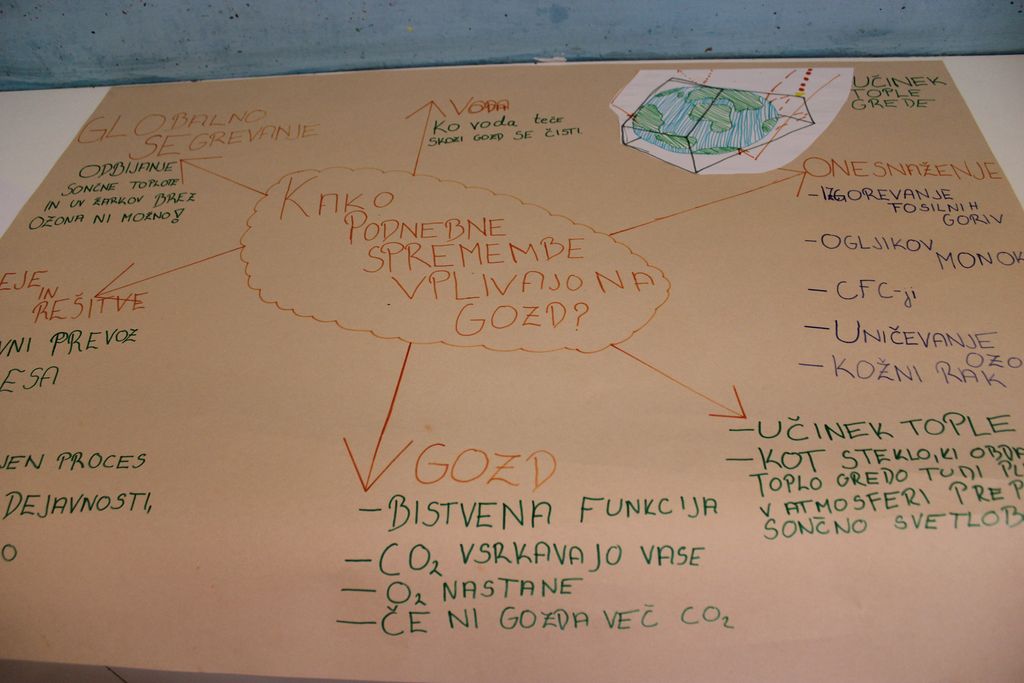 GLOBALNO
SE GREVANJE
ODBIJANJE
SONČNE TOPLOTE
IN UV ŽARKOV BREZ
OZONA NI MOŽNO!
VODA
KO VODA TEČE
SKOZI GOZD SE ČISTI.
UČINEK
TOPLE
GREDE
KAKO
PODNEBNE
SPREMEMBE
VPLIVAJO NA
GOZD?
ONESNAŽENJE
- IZGOREVANJE
FOSILNIH
GORIV
- OGLJIKOV
MONOK
- CFC-ji
- UNIČEVANJE
OZO
- KOŽNI RAK
EJE
IN
REŠITVE
VNI PREVOZ
ESA
JEN PROCES
DEJAVNOSTI,
O
GOZD
- BISTVENA FUNKCIJA
- CO2 VSRKAVAJO VASE
- O2 NASTANE
- ČE NI GOZDA VEČ CO2
- UČINEK TOPLE
- KOT STEKLO, KI OBDA
TOPLO GREDO TUDI PL
V ATMOSFERI PREP
SONČNO SVETLOB